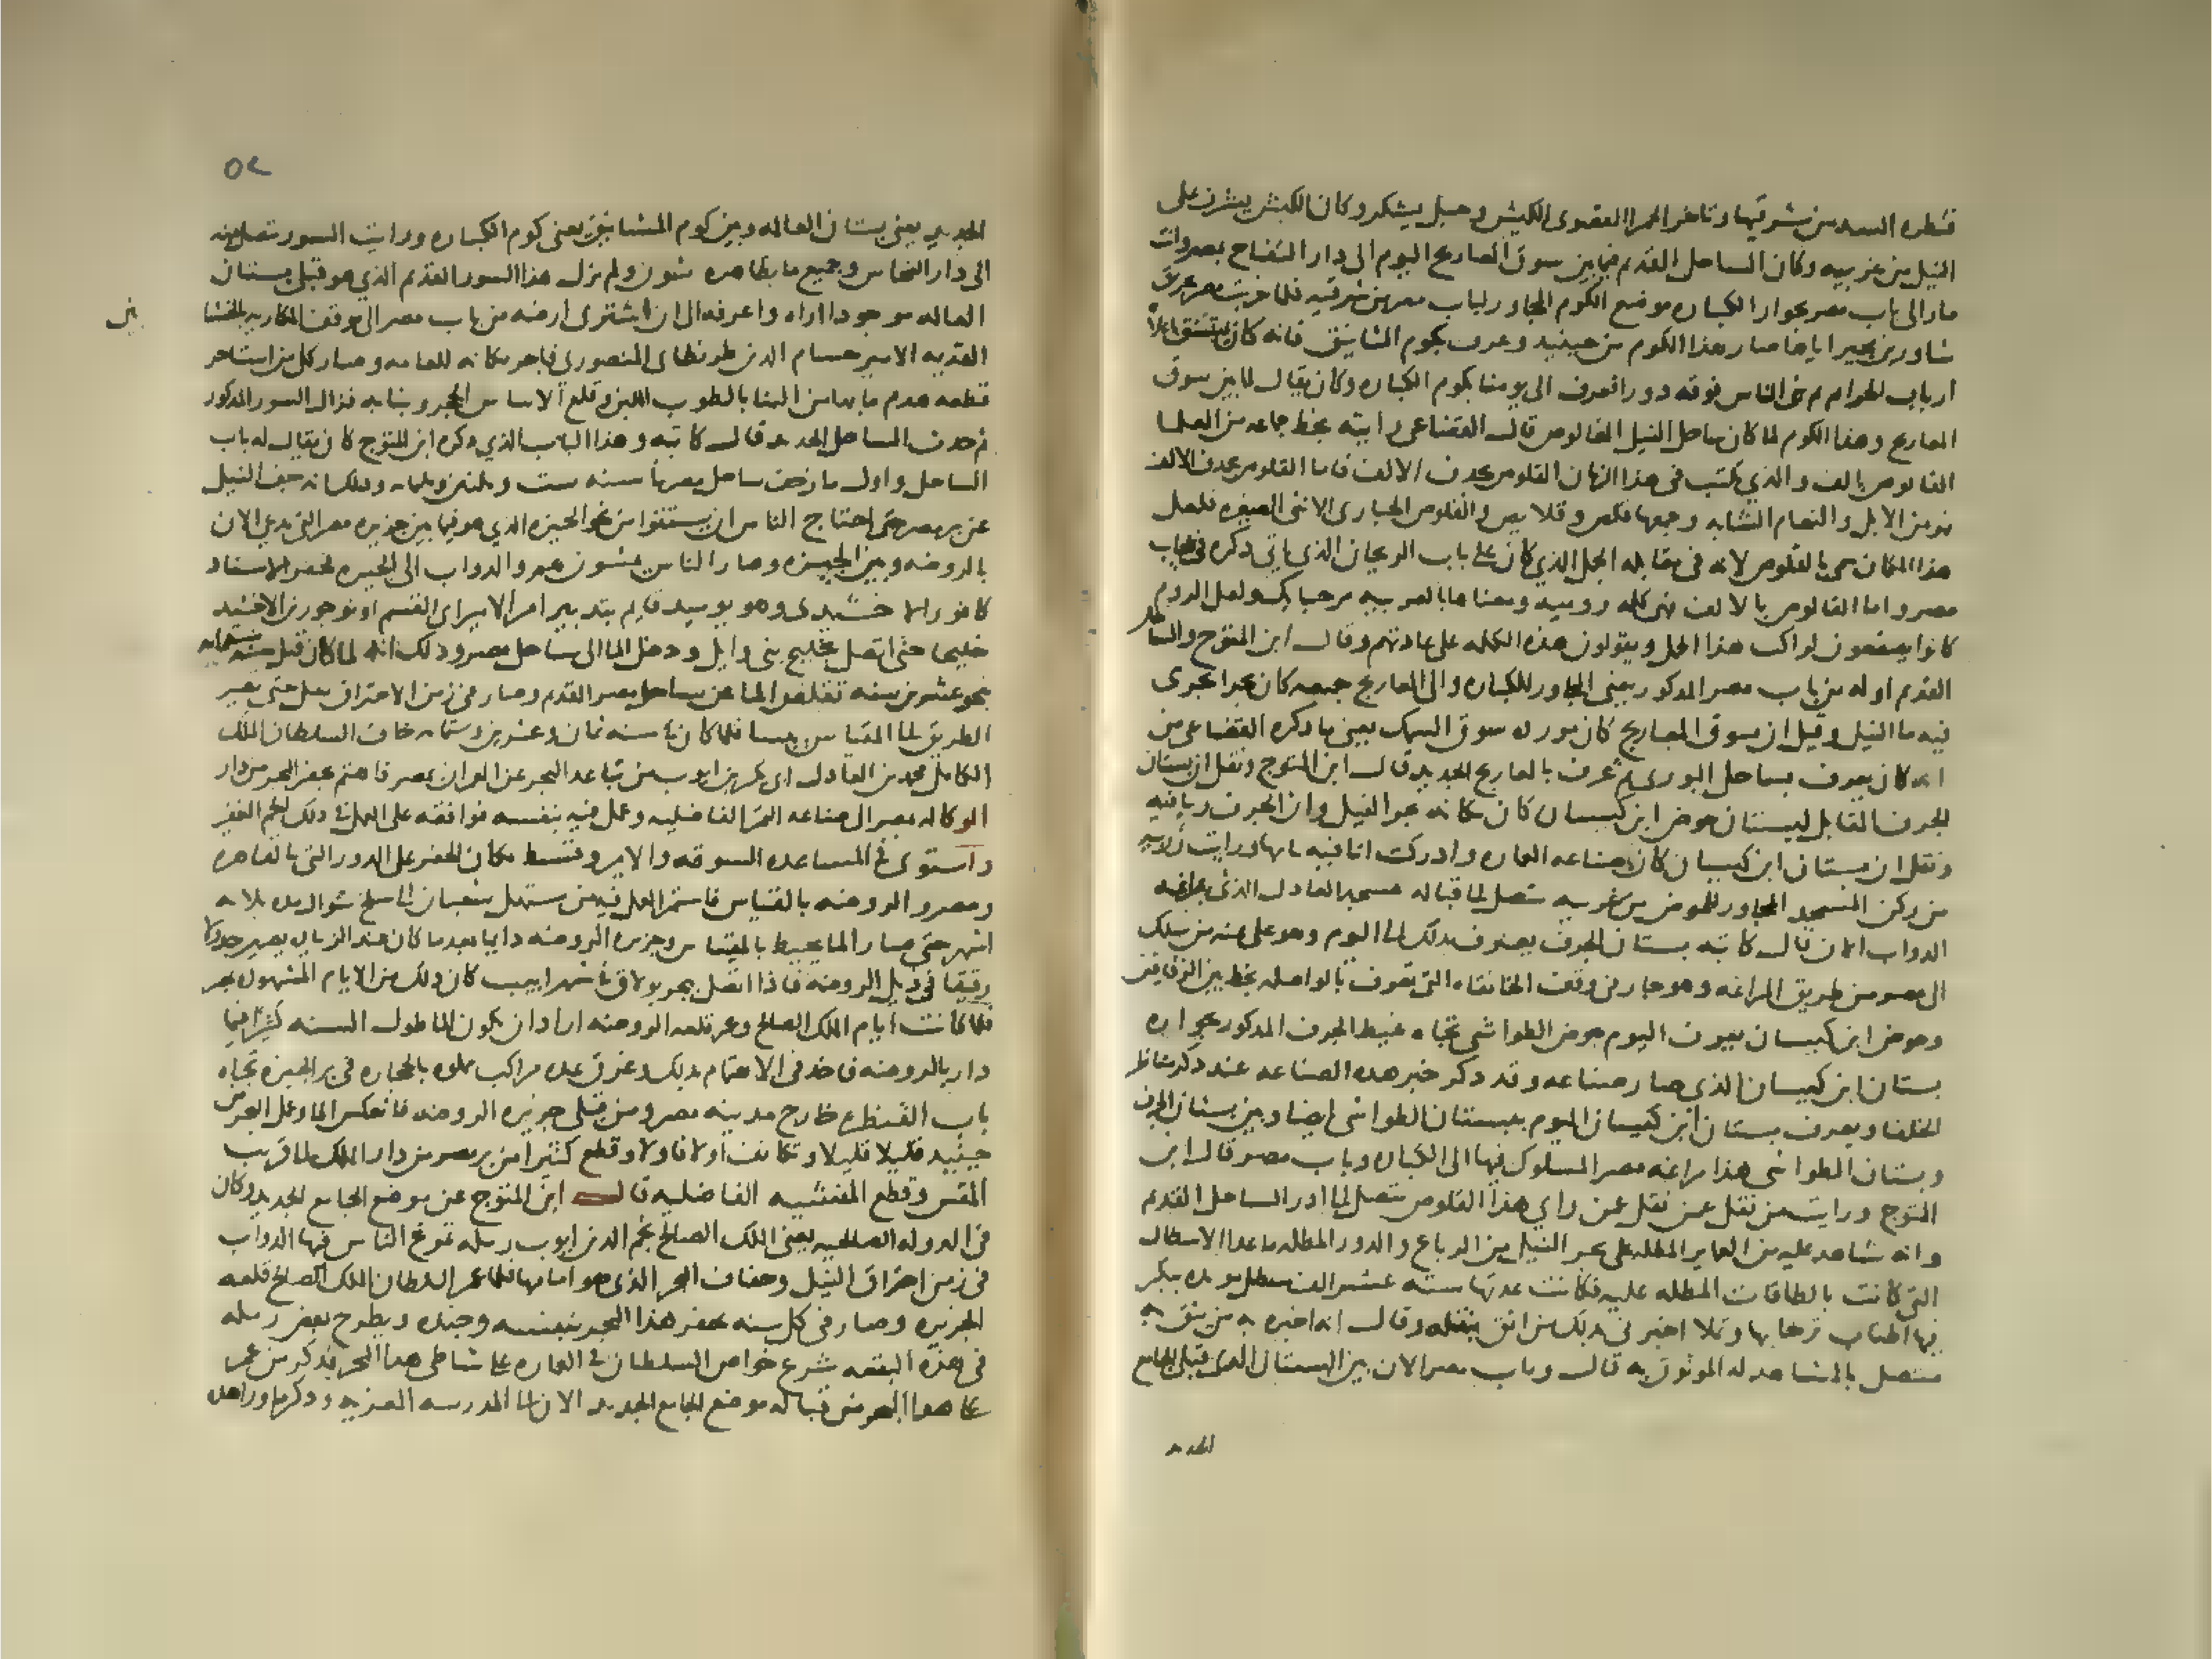 قنطره السد من شرقيها وتاخر الحمرا القصوى الكبش وجبل يشكر وكان الكبش يشرف على
النيل من غربيه وكان الساحل القديم فيما بين سوق المعاريج اليوم الى دار التفاح بمصر وانت
مار الى باب مصر بجوار الكباره وموضع الكوم المجاور لباب مصر من شرقيه فلما خربت مصر بحريق
شاور بن مجير اياها صار هذا الكوم من حينيد وعرف بكوم المشانيق فانه كان يشنق باعلاه
ارباب الجرايم ثم بنى الناس فوقه دورا فعرف الى يومنا بكوم الكباره وكان يقال لما بين سوق
المعاريج وهذا الكوم لما كان ساحل النيل القالوص قال القضاعى رايته بخط جماعه من العلما
القالوص بالف والذي يكتب في هذا الزمان القلوص بحذف الالف فاما القلوص بحذف الالف
فهو من الابل والنعام الشابه وجمعها قلص وقلاص والقلوص الحبارى الانثى الصغيره فلعل
هذا المكان سمى بالقلوص لانه في مقابله الجمل الذي كان على باب الريحان الذي ياتي ذكره في عجايب
مصر واما القالوص بالالف فهى كلمه روميه ومعناها بالعربيه مرحبا بك ولعل الروم
كانوا يصفقون لراكب هذا الجمل ويقولون هذه الكلمه على عادتهم وقال ابن المتوج والساحل
القديم اوله من باب مصر المدكور يعنى المجاور للكباره والى المعاريج جميعه كان بحرا يجرى
فيه ما النيل وقيل ان سوق المعاريج كان مورده سوق السمك يعنى ما دكره القضاعى من
انه كان يعرف بساحل البورى ثم عرف بالمعاريج الجديد قال ابن المتوج ونقل ان بستان
الجرف المقابل لبستان حوض ابن كيسان كان مكانه بحر النيل وان الجرف ربا فيه
ونقل ان بستان ابن كيسان كان صناعه العماره وادركت انا فيه بابها ورايت زريبه
من ركن المسجد المجاور للحوض من غربيه تتصل الى قباله مسجد العادل الذي بمراغه
الدواب الان قال كاتبه بستان الجرف يعرف بدلك الى اليوم وهو على يمنه من سلك
الى مصر من طريق المراغه وهو جار في وقف الخانقاه التى تعرف بالواصله بخط بين الزقاقين
وحوض ابن كيسان يعرف اليوم بحوض الطواشى تجاه غيط الجرف المدكور بجواره
بستان ابن كيسان الذي صار صناعه وقد دكر خبر هده الصناعه عند دكر مناظر
الخلفا ويعرف بستان ابن كيسان اليوم ببستان الطواشى ايضا وبين بستان الجرف
وبستان الطواشى هذا مراغه مصر المسلوك فيها الى الكباره وباب مصر قال ابن
المتوج ورايت من نقل عمن نقل عمن راي هذا القلوص يتصل الى ادر الساحل القديم
وانه شاهد عليه من العماير المطله على بحر النيل من الرباع والدور المطله ما عدا الاسطال
التى كانت بالطاقات المطله عليه فكانت عدتها سته عشر الف سطل موبده ببكر
فيها اطناب ترخا بها وتملا اخبرني بدلك من اثق بنقله وقال انه اخبره به من يثق به
متصل بالمشاهد له الموثوق به قال وباب مصر الان بين البستان الذي قبلى الجامع
الجديد
٥٢
الجديد يعنى بستان العالمه وبين كوم المشانيق يعنى كوم الكباره ورايت السور يتصل منه
الى دار النحاس وجميع ما بظاهره شون ولم يزل هذا السور القديم الذي هو قبلى بستان
العالمه موجودا اراه واعرفه الى ان اشترى ارضه من باب مصر الى موقف المكاريه بالخشا
بين
القديمه الامير حسام الدين طرنطاى المنصورى فاجر مكانه للعامه وصار كل من استاجر
قطعه هدم ما بها من البنا بالطوب اللبن وقلع الاساس الحجر وبنا به فزال السور المدكور
ثم حدث الساحل الجديد قال كاتبه وهذا الباب الذي دكره ابن المتوج كان يقال له باب
الساحل واول ما حفر ساحل مصر في سنه ست وثلثين وثلثمايه ودلك انه جف النيل
عن بر مصر حتى احتاج الناس ان يستقوا من بحر الجيزه الذي هو فيما بين جزيره مصر التى تدعى الان
بالروضه وبين الجيزه وصار الناس يمشون هم والدواب الى الجيزه فحفر الاستاد
كافور الاخشيدى وهو يوميد قايم بتدبير امر الامير ابى القسم اونوجور بن الاخشيد
خليجا حتى اتصل بخليج بنى وايل ودخل الما الى ساحل مصر ودلك انه لما كان قبل سنه ستمايه
بنحو عشرين سنه تقلص الما عن ساحل مصر القديم وصار في زمن الاحتراق يقل حتى يصير
الطريق الى المقياس يبسا فلما كان في سنه ثمان وعشرين وستمايه خاف السلطان الملك
الكامل محمد بن العادل ابى بكر بن ايوب من تباعد البحر عن العمران بمصر فاهتم بحفر البحر من دار
الوكاله بمصر الى صناعه التمر الفاضليه وعمل فيه بنفسه فوافقه على العمل في دلك الجم الغفير
واستوى في المساعده السوقه والامير وقسط مكان الحفر على الدور التى بالقاهره
ومصر والروضه بالقياس فاستمر العمل فيه من مستهل شعبان الى سلخ شوال مده ثلاثه
اشهر حتى صار الما يحيط بالمقياس وجزيره الروضه دايما بعدما كان عند الزياده يصير جدولا
رقيقا في ديل الروضه فاذا اتصل ببحر بولاق في شهر ابيب كان دلك من الايام المشهوده بمصر
فلما كانت ايام الملك الصالح وعمر قلعه الروضه اراد ان يكون الما طول السنه كثيرا فيما
دار بالروضه فاخذ في الاهتمام بدلك وغرق عده مراكب مملوه بالحجاره في بر الجيزه تجاه
باب القنطره خارج مدينه مصر ومن قبلى جزيره الروضه فانعكس الما وعمل البحر
حينيد قليلا قليلا وتكاثف اولا فاولا وقطع كثيرا من بر مصر من دار الملك الى قريب
المقس وقطع المنشيه الفاضليه قال ابن المتوج عن موضع الجامع الجديد وكان
في الدوله الصالحيه يعنى الملك الصالح نجم الدين ايوب رمله تمرغ الناس فيها الدواب
في زمن احتراق النيل وجفاف البحر الذي هو امامها فلما عمر السلطان الملك الصالح قلعه
الجزيره وصار في كل سنه يحفر هذا البحر بنفسه وجنده ويطرح بعض رمله
في هذه البقعه شرع خواص السلطان في العماره على شاطى هدا البحر فدكر من عمر
على هدا البحر من قباله موضع الجامع الجديد الان الى المدرسه المعزيه ودكر ما وراهده